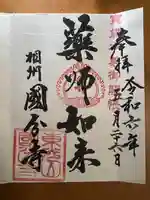 奉拝
令和六年
五月二十六日
薬師如来
相州
國分寺